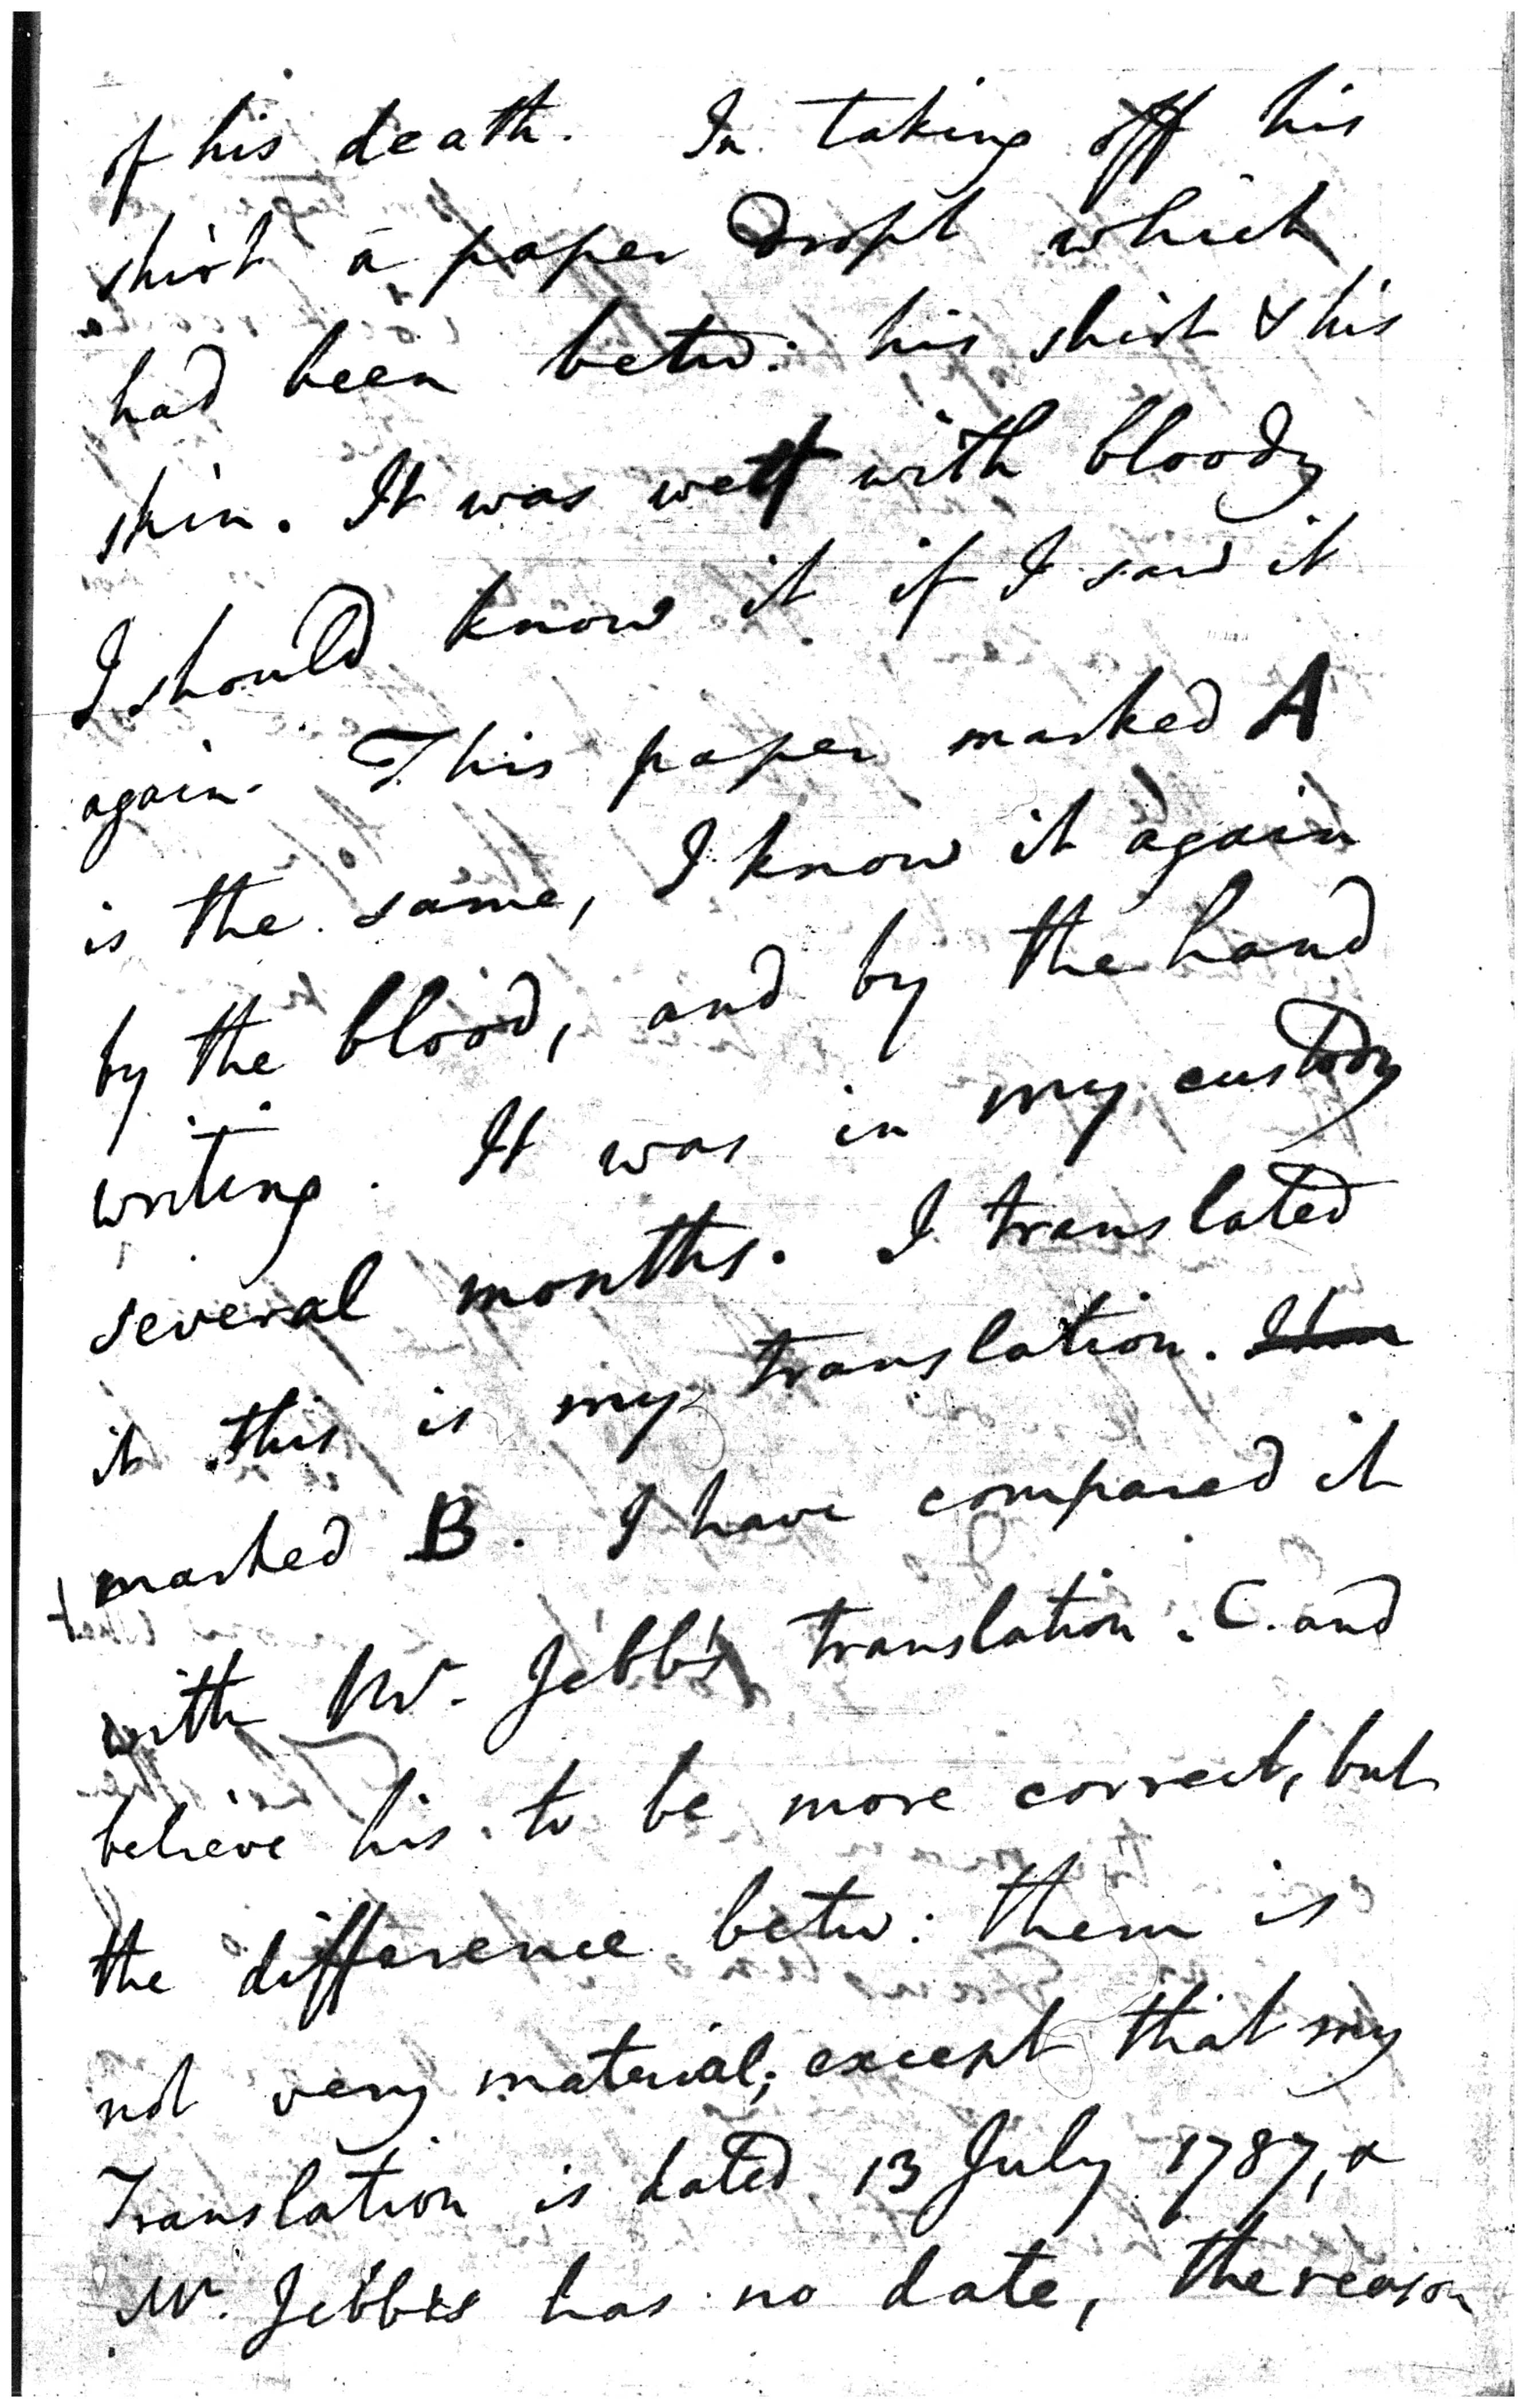 of his death. In taking off his
shirt a paper dropt which
had been betw: his shirt & his
skin. It was wett with bloody
I should know it if I saw it
again. This paper marked A
is the same, I know it again
by the blood, and by the hand
writing. It was in my custody
several months. I translated
it this is my translation.
marked B. I have compared it
with Mr. Jebb's translation. C. and
believe his to be more correct, but
the difference betw: them is
not very material; except that my
Translation is dated 13 July 1787, &
Mr. Jebbs has no date, the reason